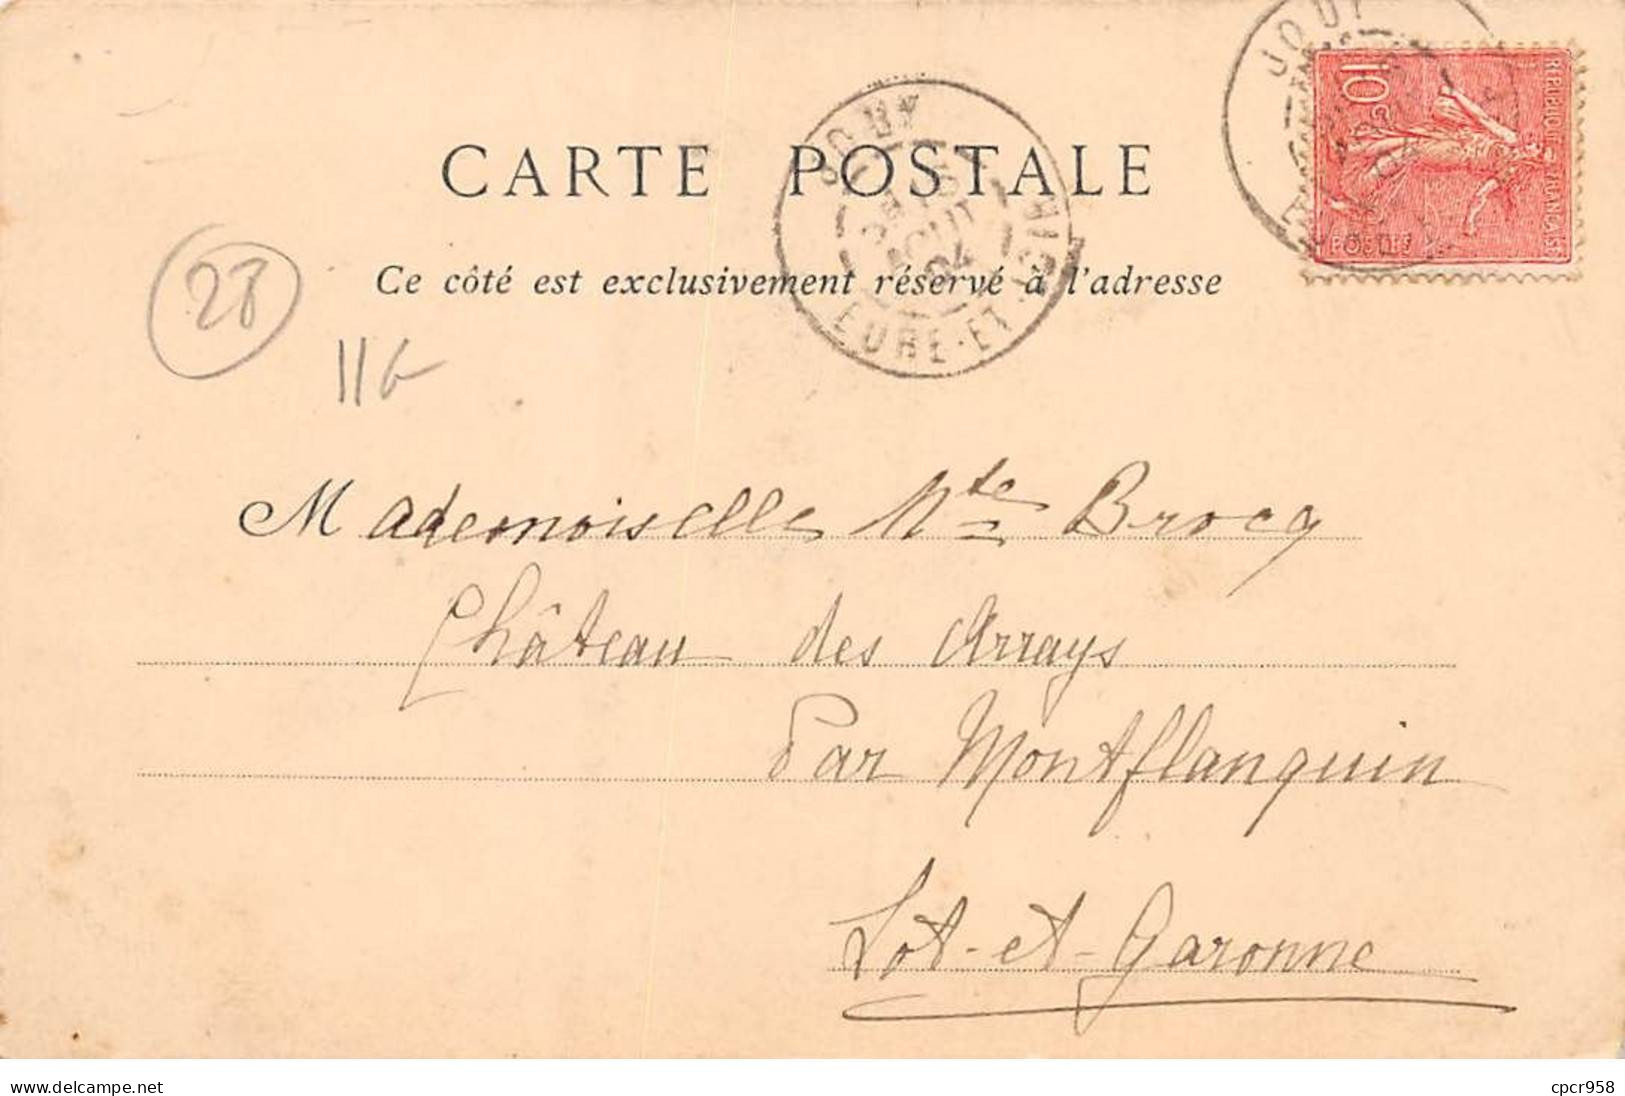 CARTE POSTALE
Ce côté est exclusivement réservé à l'adresse
JOUY
EURE-ET-
AOUT
04
JOUY
10c
REPUBLIQUE FRANÇAISE
POSTES
28
11 G
Mademoiselle Mte Brocq
Château des Arrays
Par Montflanquin
Lot-et-Garonne
www.delcampe.net
cpcr958